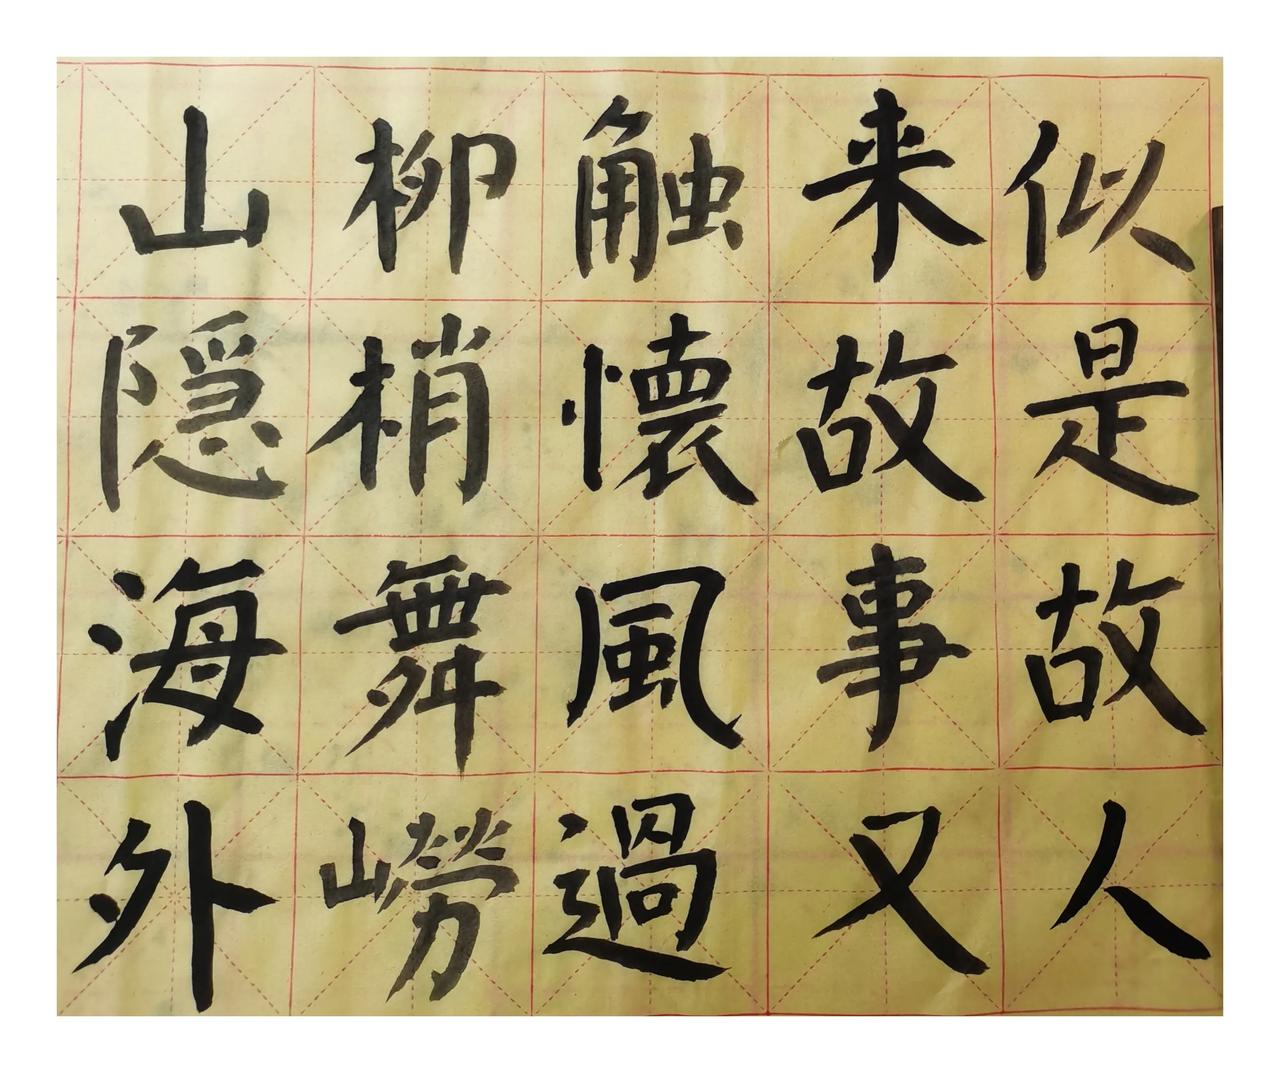 似是故人
来故事又
触懷風過
柳梢舞嶗
山隱海外